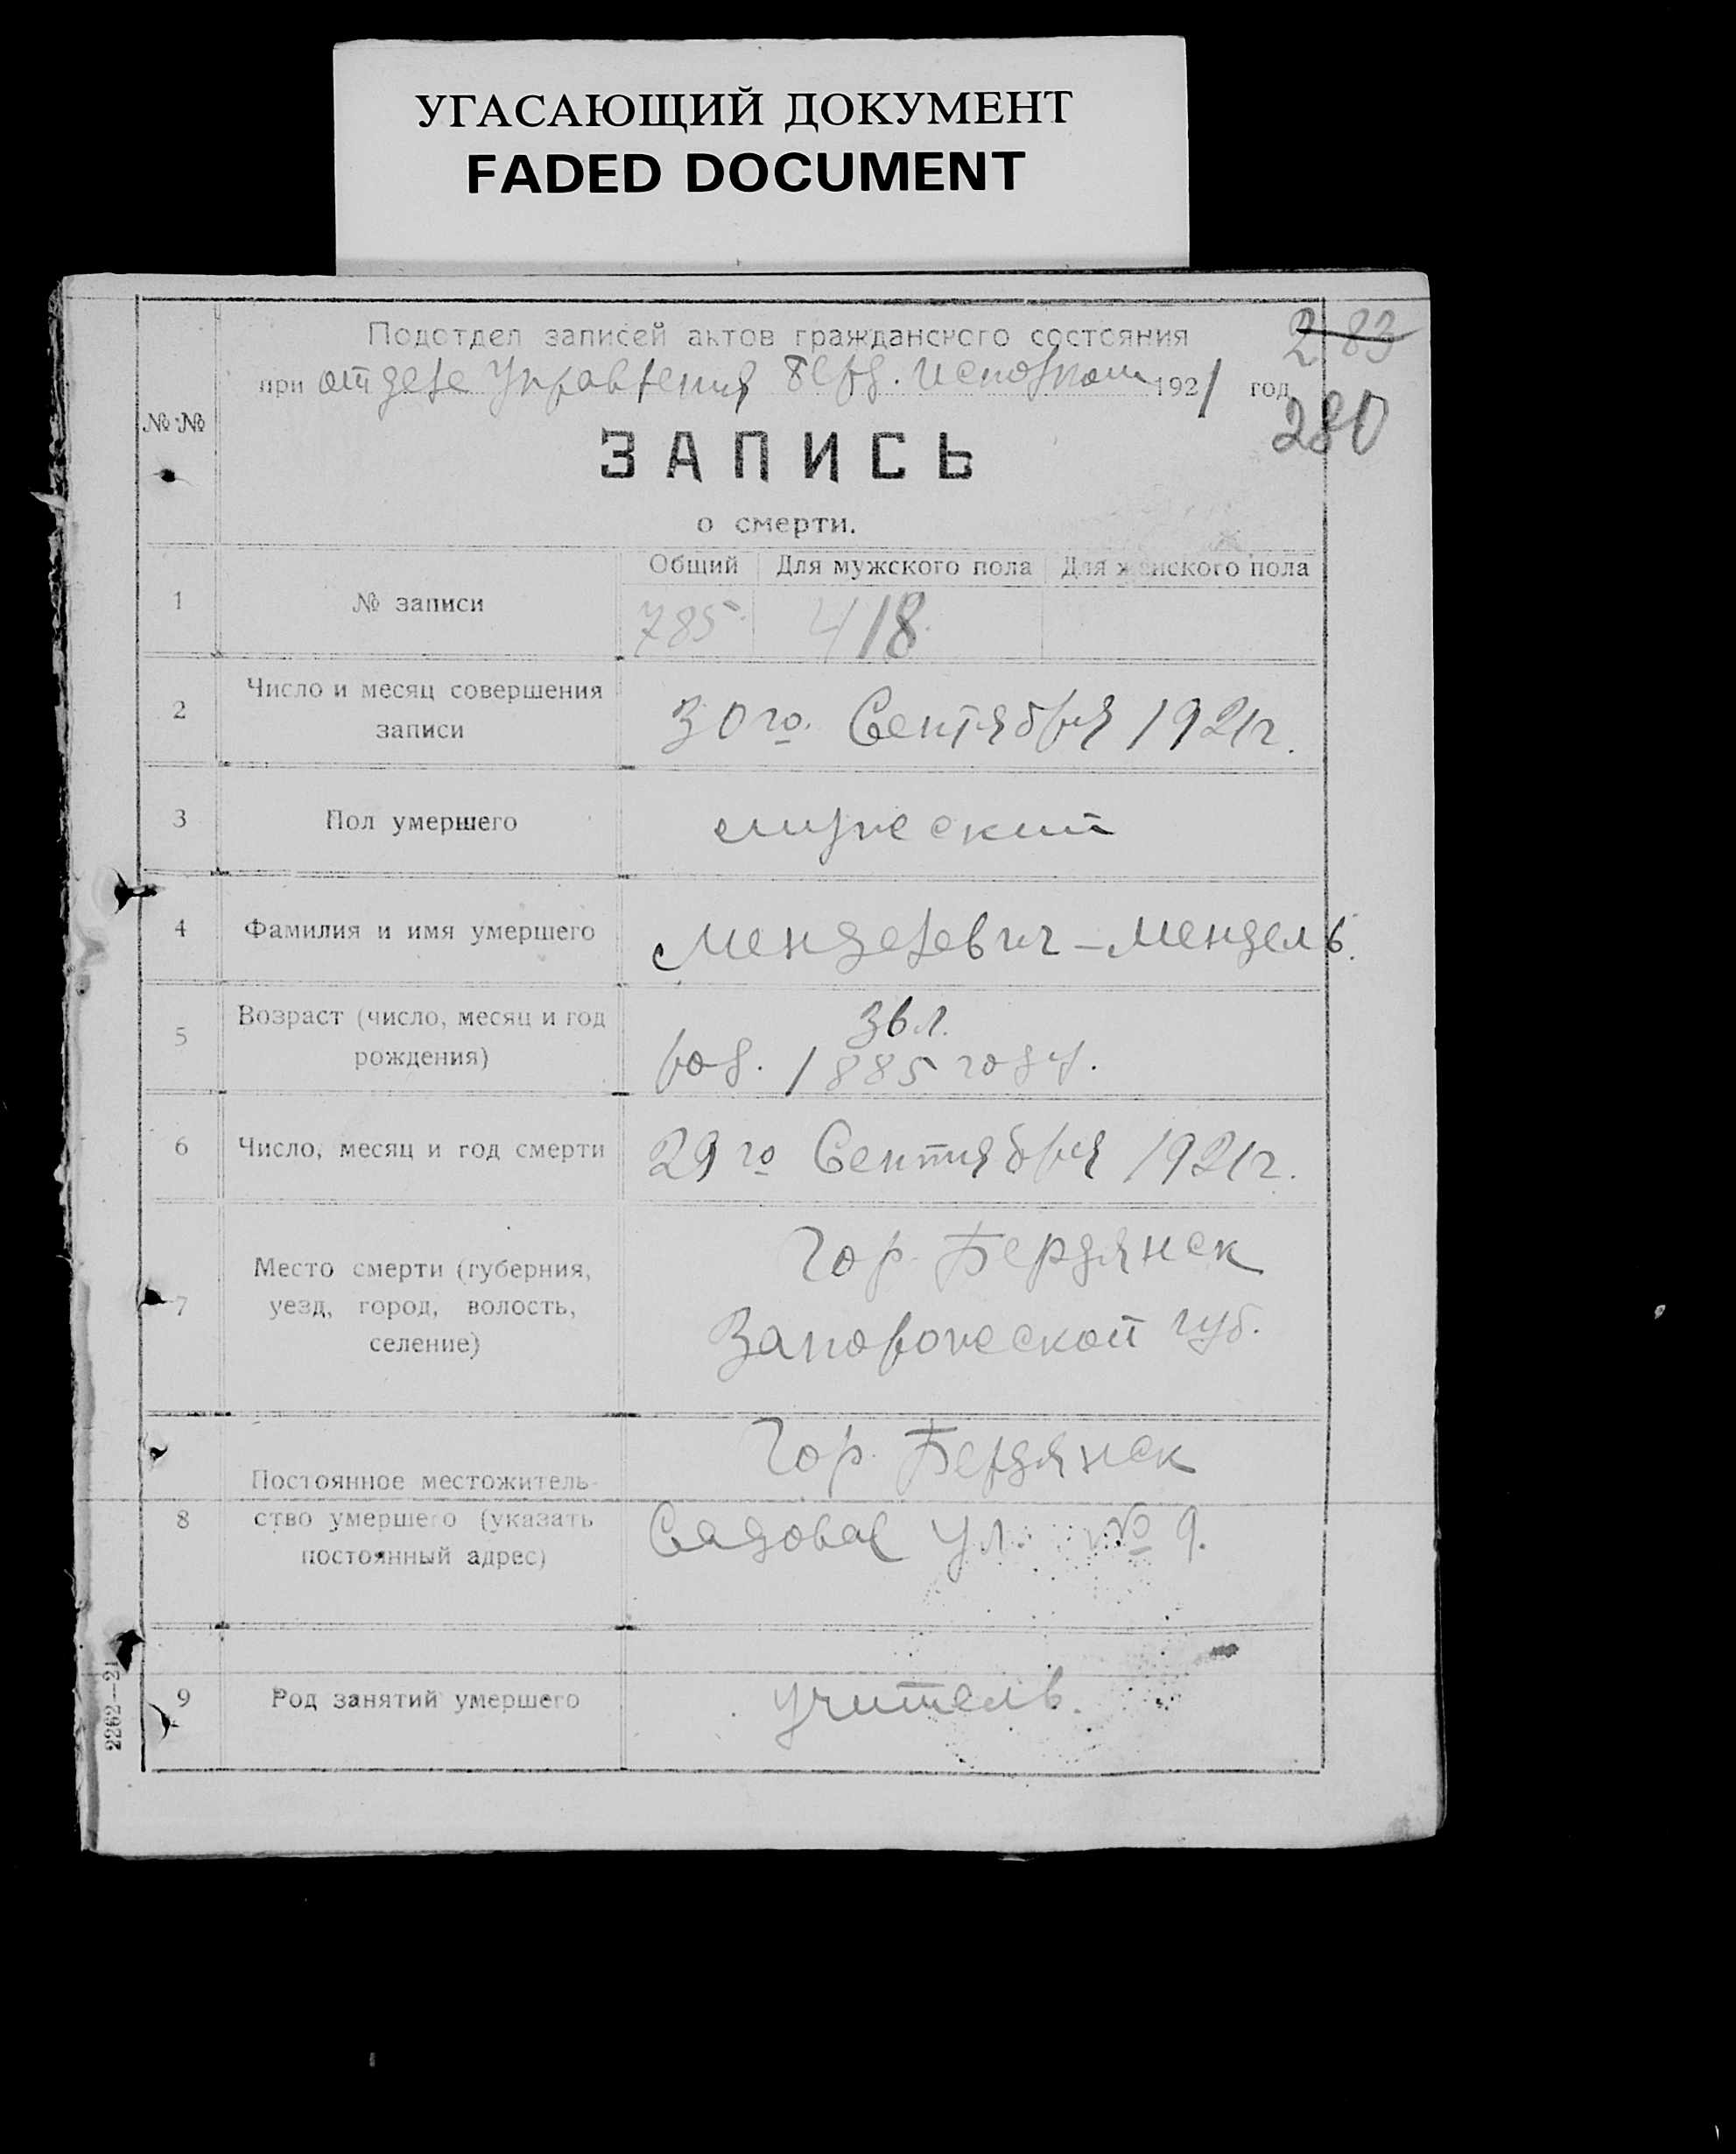 УГАСАЮЩИЙ ДОКУМЕНТ
FADED DOCUMENT
Подотдел записей актов гражданского состояния
при отделе Управления Берд. Исполком 1921 год
283
280
№№
ЗАПИСЬ
о смерти.
Общий Для мужского пола Для женского пола
1 № записи 785 418
2 Число и месяц совершения
записи
30го. Сентября 1921г.
3 Пол умершего мужеский
4 Фамилия и имя умершего Менделевич - Мендель.
5 Возраст (число, месяц и год
рождения)
36 л.
род. 1885 году.
6 Число, месяц и год смерти 29го Сентября 1921г.
7 Место смерти (губерния,
уезд, город, волость,
селение)
Гор. Бердянск
Запорожеской губ.
8 Постоянное местожитель-
ство умершего (указать
постоянный адрес)
Гор. Бердянск
Садовая ул. № 9.
9 Род занятий умершего учитель.
2262—21